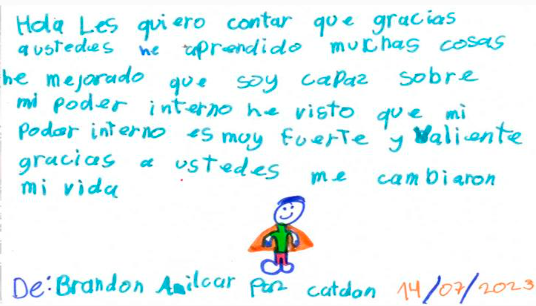 Hola Les quiero contar que gracias
austedes he aprendido muchas cosas
he mejorado que soy capaz sobre
mi poder interno he visto que mi
Poder interno es muy fuerte y Valiente
gracias a ustedes me cambiaron
mi vida
De: Brandon Amilcar Paz catalan 14/07/2023